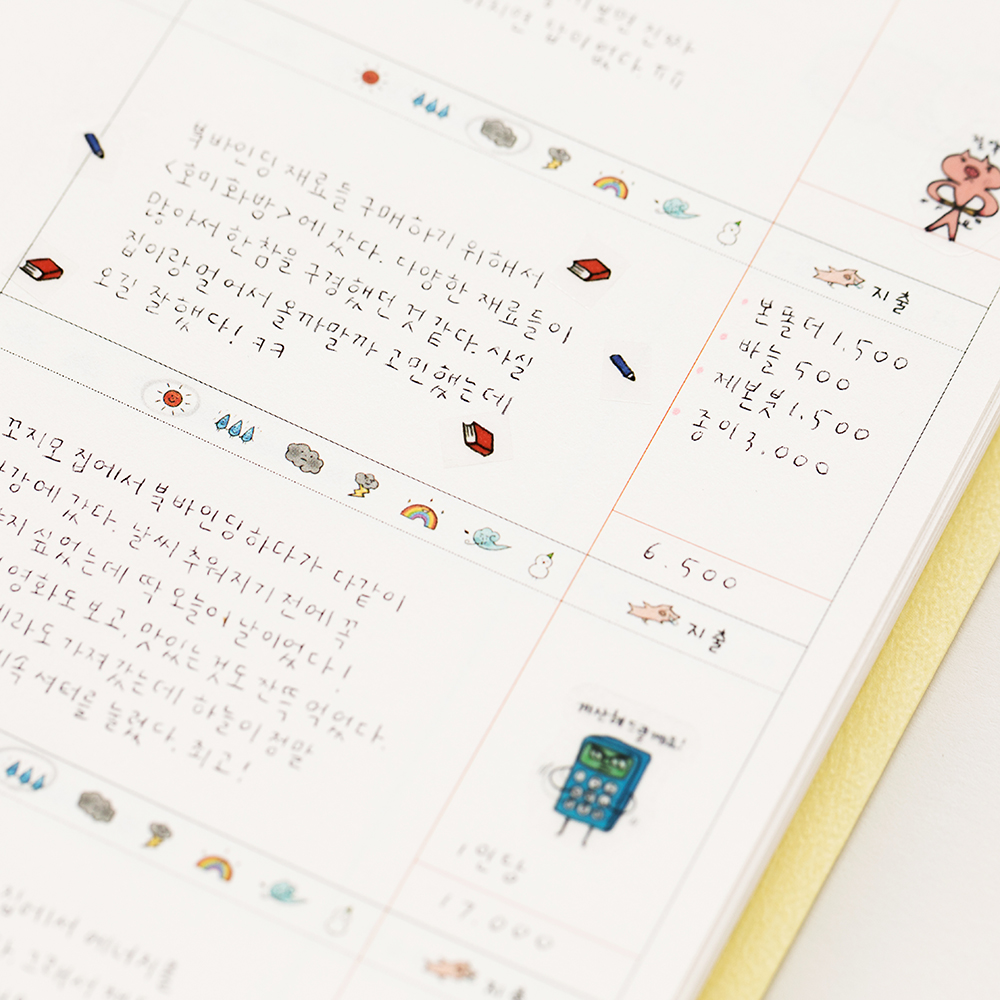 북바인딩 재료들 구매하기 위해서
<호미화방>에 갔다. 다양한 재료들이
많아서 한참을 구경했던 것 같다. 사실
집이랑 멀어서 올까말까 고민했는데
오길 잘했다! ㅋㅋ
지출
본폴더 1.500
바늘 500
제본붓 1.500
종이 3.000
6.500
꼬지모 집에서 북바인딩하다가 다같이
갔다. 날씨 추워지기 전에 꼭
싶었는데 딱 오늘이 날이었다!
영화도 보고, 맛있는 것도 잔뜩 먹었다.
가져갔는데 하늘이 정말
셔터를 눌렀다. 최고!
지출
1인당
17.000
지출